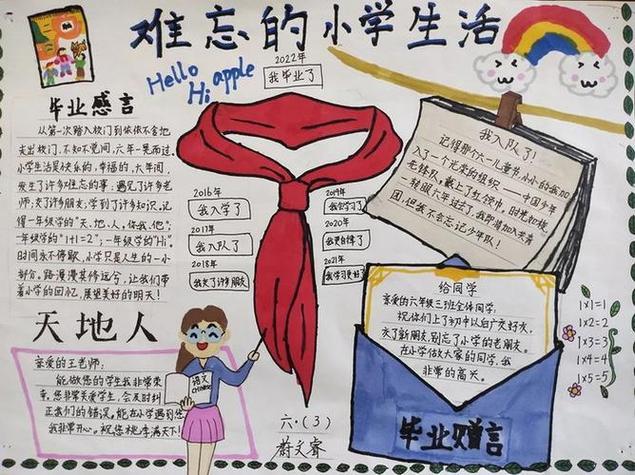 难忘的小学生活
Hello
Hi apple
2022年
我毕业了
毕业感言
从第一次踏入校门到依依不舍地
走出校门,不知不觉间,六年一晃而过。
小学生活是快乐的,幸福的,六年间,
发生了许多难忘的事;遇见了许多老
师;交了许多朋友;学到了许多知识。记
得一年级学的"天,地,人,你,我,他";
一年级学的"1+1=2";一年级学的"Hi"。
时间永不停歇,小学只是人生的一小
部分。路漫漫其修远兮,让我们带
着小学的回忆,展望美好的明天!
2016年
我入学了
2017年
我入队了
2018年
我交了许多朋友
2019年
我会学习了
2020年
2021年
我学习更好了
我入队了!
记得那个六一儿童节,小小的我加
入了一个光荣的组织——中国少年
先锋队,戴上了红领巾,时光如梭,
转眼六年过去了,我即将加入共青
团,但我不会忘记少年队!
给同学
亲爱的六年级三班全体同学:
祝你们上了初中以后广交好友,
交了新朋友,别忘了小学的老朋友。
在小学做大家的同学,我
非常的高兴。
毕业赠言
1×1=1
1×2=2
1×3=3
1×4=4
1×5=5
天地人
亲爱的王老师:
能做您的学生我非常荣
幸。您非常关爱学生,会及时纠
正我们的错误。能在小学遇到您
我非常开心。祝您桃李满天下!
语文
六·(3)